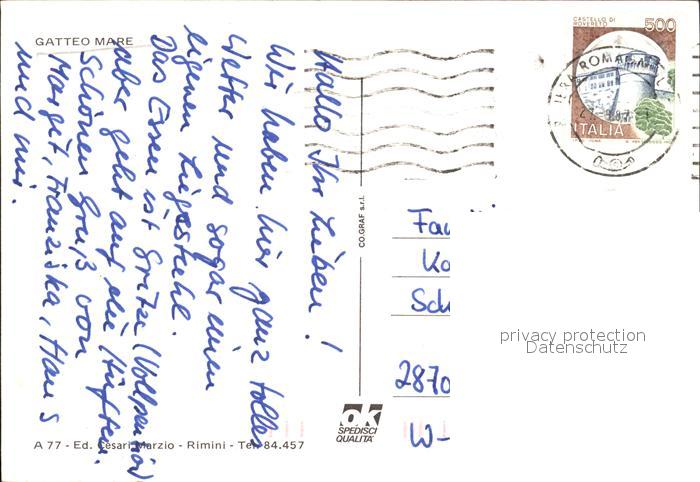 GATTEO MARE
Hallo Ihr Lieben!
Wir haben hier ganz tolles
Wetter und sogar einen
eigenen Liegestuhl.
Das Essen ist Spitze (Vollpension)
aber geht auf die Hüften.
Schönen Gruß von
Marget, Franziska, Hans
und mir.
A 77 - Ed. Cesari Marzio - Rimini - Tel. 84.457
CO.GRAF s.r.l.
ok
SPEDISCI
QUALITA'
CASTELLO DI
ROVERETO
500
ITALIA
ROMA
Fa
Ko
Sch
2870
W-
privacy protection
Datenschutz